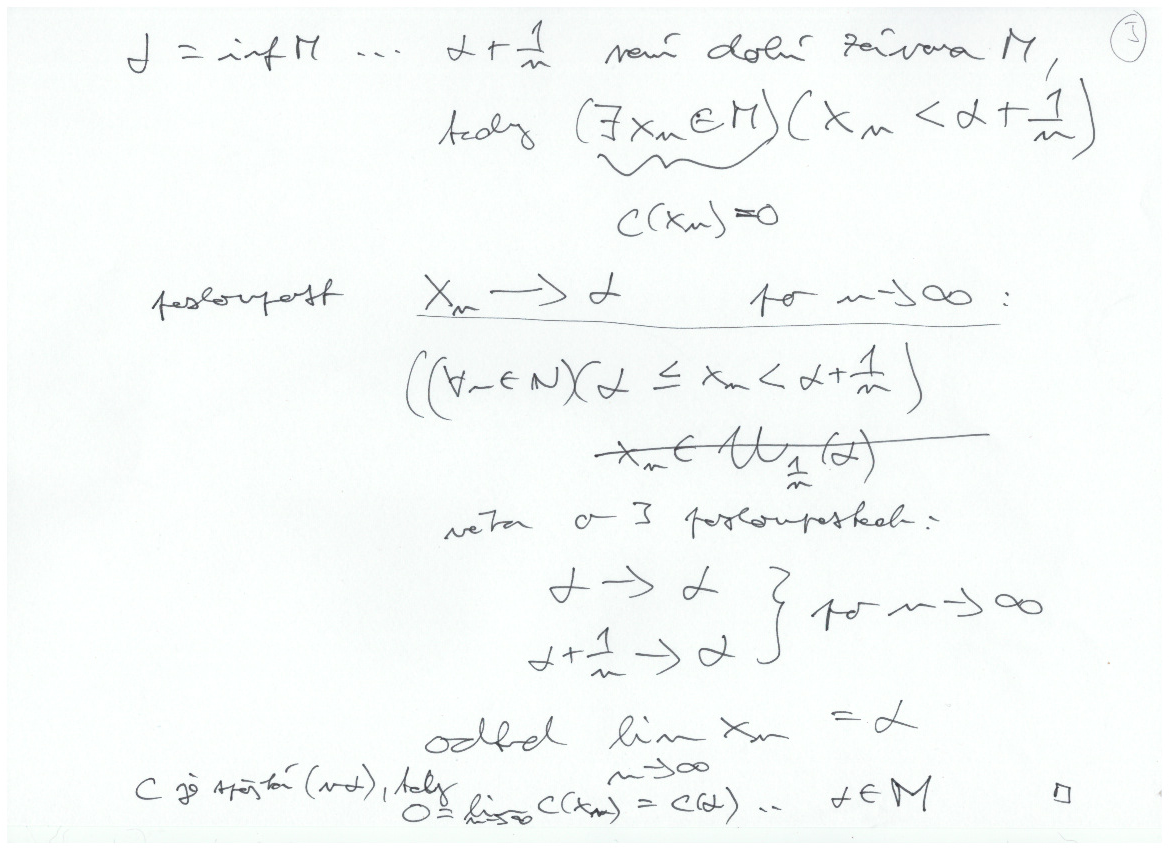 3
α = inf M ... α + 1/n není dolní závora M,
tedy (∃ x_n ∈ M)(x_n < α + 1/n)
C(x_n) = 0
posloupnost x_n → α pro n → ∞ :
((∀n ∈ N)(α ≤ x_n < α + 1/n)
x_n ∈ U_{1/n}(α)
věta o 3 posloupnostech:
α → α
α + 1/n → α } pro n → ∞
odtud lim_{n→∞} x_n = α
C je spojitá (v α), tedy
0 = lim_{n→∞} C(x_n) = C(α) .. α ∈ M □